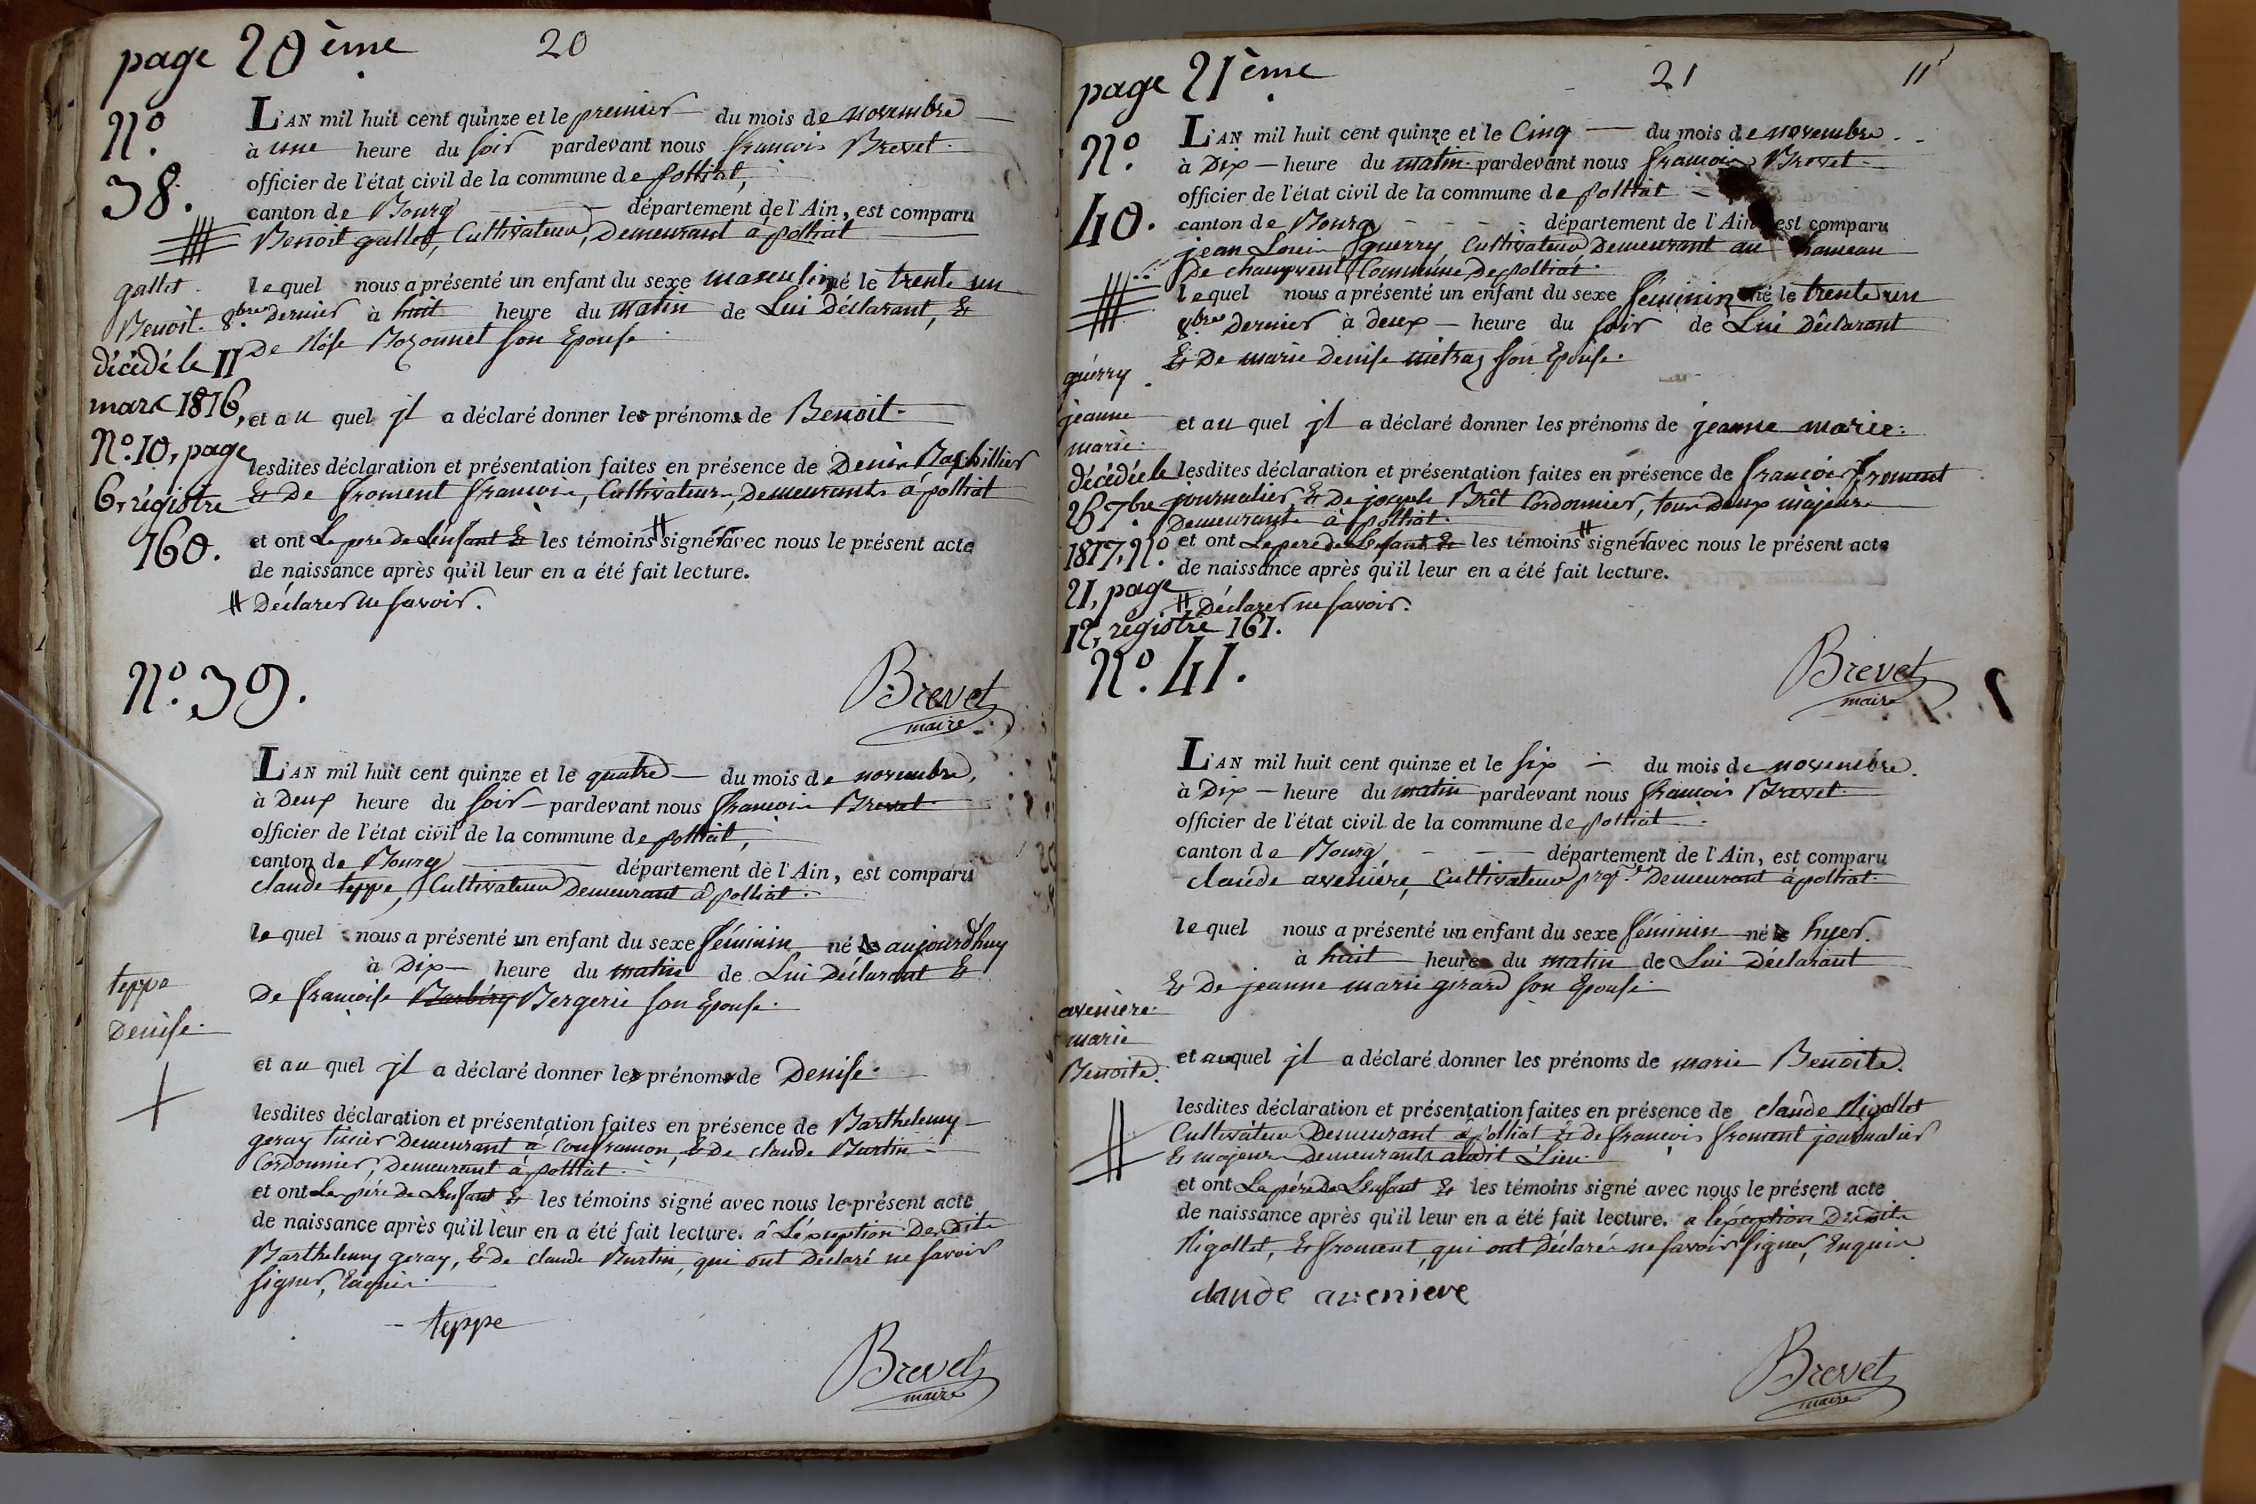 page 20ème 20
N.º
38.
L'AN mil huit cent quinze et le premier du mois de novembre
à une heure du soir pardevant nous françois Brevet
officier de l'état civil de la commune de polliat,
canton de Bourg département de l'Ain, est comparu
Benoit gallet, Cultivateur, Demeurant à polliat
gallet
Benoit.
décédé le 11
mars 1816,
N.º 10, page
6, régistre
160.
le quel nous a présenté un enfant du sexe masculin né le trente un
8.bre Dernier à huit heure du matin de Lui Déclarant, &
De Rose Bozonnet son Epouse
et au quel jl a déclaré donner les prénoms de Benoit
lesdites déclaration et présentation faites en présence de Denis
& De froment françois, Cultivateurs, Demeurants à polliat
et ont Le pere de L'enfant & les témoins # signér avec nous le présent acte
de naissance après qu'il leur en a été fait lecture.
# Déclarer ne savoir.
Brevet
maire
N.º 39.
L'AN mil huit cent quinze et le quatre du mois de novembre,
à Deux heure du soir pardevant nous françois Brevet
officier de l'état civil de la commune de polliat,
canton de Bourg département de l'Ain, est comparu
claude teppe, Cultivateur Demeurant à polliat.
teppe
Denise
le quel nous a présenté un enfant du sexe féminin né le aujourd'huy
à Dix heure du matin de Lui Déclarant &
De françoise Barbéry Bergerie son Epouse.
et au quel jl a déclaré donner les prénoms de Denise.
lesdites déclaration et présentation faites en présence de Barthelemy
geray Demeurant à Confrancon, & De claude Burtin
Cordonnier, Demeurant à polliat.
et ont Le pére De L'enfant & les témoins signé avec nous le présent acte
de naissance après qu'il leur en a été fait lecture. à L'éxception Desdits
Barthelemy geray, & De claude Burtin, qui ont Déclaré ne savoir
signer, Enquis.
teppe
Brevet
maire
page 21ème 21 11
N.º
40.
L'AN mil huit cent quinze et le Cinq du mois de novembre
à Dix heure du matin pardevant nous françois Brevet
officier de l'état civil de la commune de polliat
canton de Bourg département de l'Ain est comparu
jean Louis guerry Cultivateur Demeurant au hameau
De champvent, Commune De polliat.
guérry
jeanne
marie.
décédée le
26 7bre
1817, N.º
21, page
12, régistre 161.
le quel nous a présenté un enfant du sexe féminin né le trente un
8bre Dernier à deux heure du soir de Lui Déclarant
& De marie Denise métraz son Epouse.
et au quel jl a déclaré donner les prénoms de jeanne marie.
lesdites déclaration et présentation faites en présence de françois froment
journalier, & De joseph Brêt Cordonnier, tous Deux majeurs
Demeurants à polliat.
et ont Le pere de L'enfant & les témoins # signér avec nous le présent acte
de naissance après qu'il leur en a été fait lecture.
# Déclarer ne savoir.
Brevet
maire
N.º 41.
L'AN mil huit cent quinze et le six du mois de novembre.
à Dix heure du matin pardevant nous françois Brevet
officier de l'état civil de la commune de polliat
canton de Bourg, département de l'Ain, est comparu
claude aveniere, Cultivateur prop.re Demeurant à polliat
aveniere
marie
Benoite.
le quel nous a présenté un enfant du sexe féminin né le hyer.
à huit heure du matin de Lui Déclarant
& De jeanne marie girard son Epouse
et auquel jl a déclaré donner les prénoms de marie Benoite.
lesdites déclaration et présentation faites en présence de claude Rigollet
Cultivateur Demeurant à polliat & de françois froment journalier
& majeurs Demeurants audit Lieu.
et ont Le pére De L'enfant & les témoins signé avec nous le présent acte
de naissance après qu'il leur en a été fait lecture. a l'éxception Desdits
Rigollet, & froment, qui ont Déclarér ne savoir signer, Enquis
claude aveniere
Brevet
maire